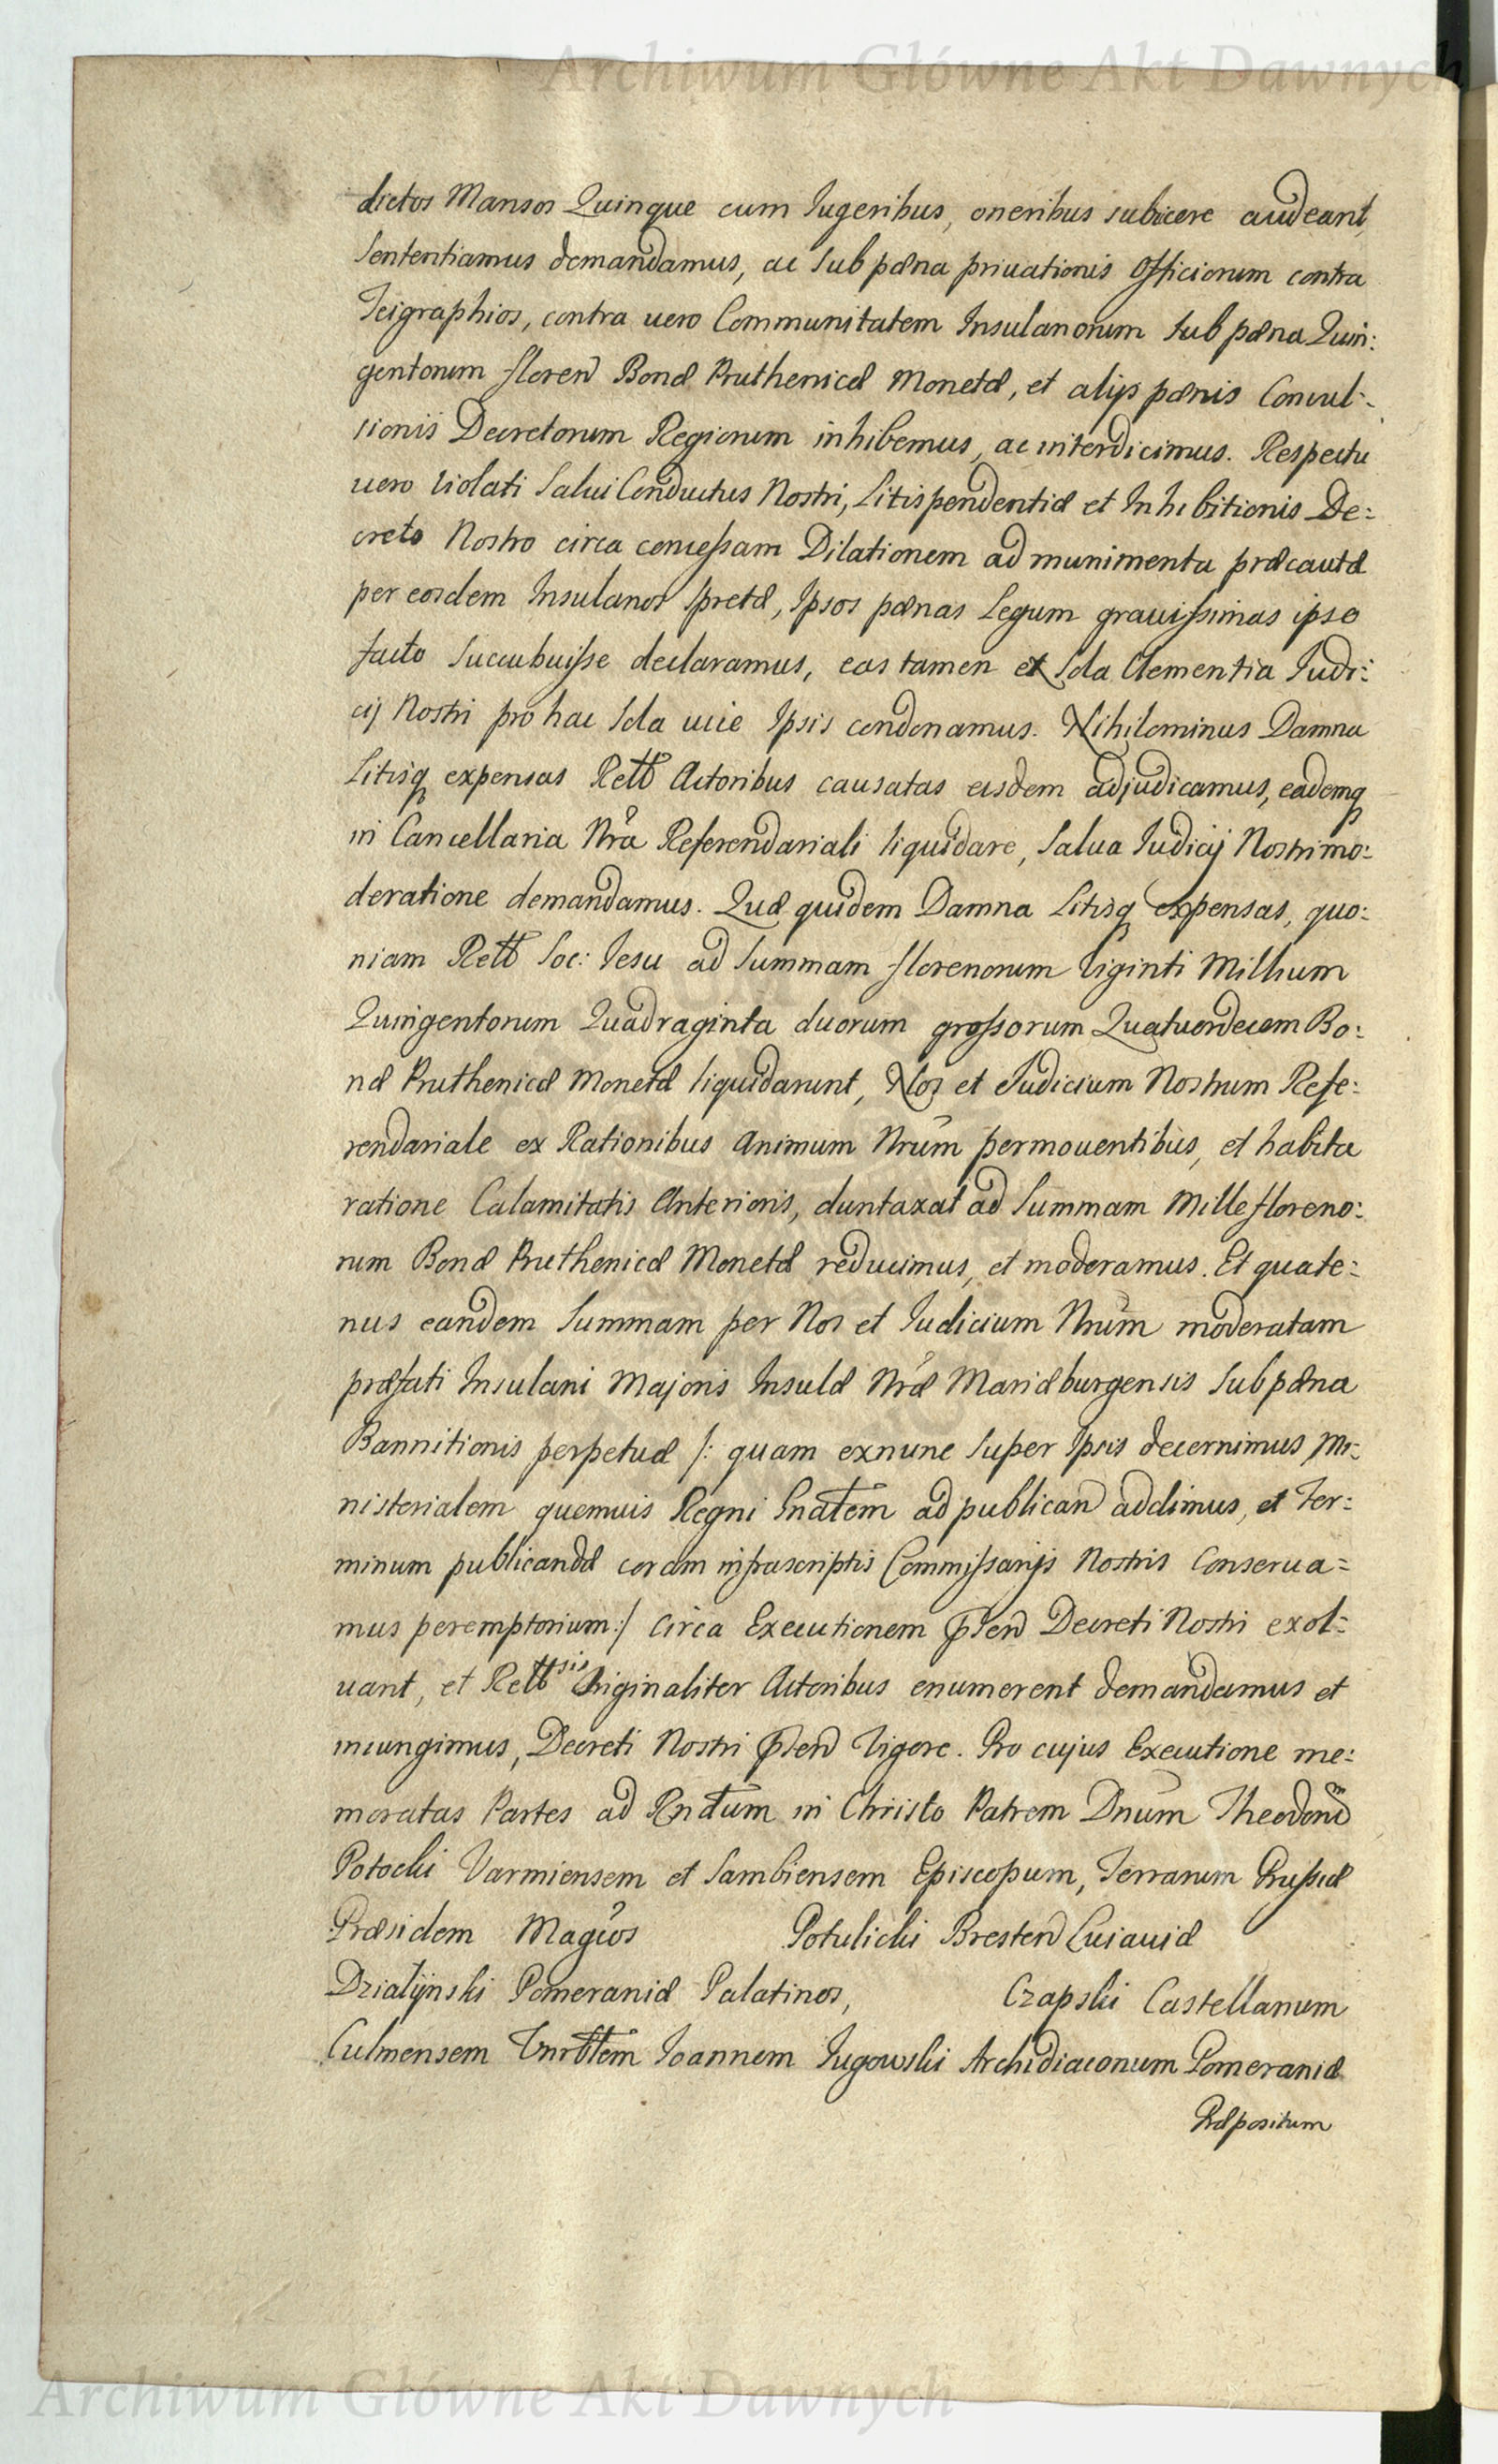 Archiwum Główne Akt Dawnych
dictos Mansos Quinque cum Iugeribus, oneribus subiicere audeant,
Sententiamus demandamus, ac sub pæna priuationis Officiorum contra
Teigraphios, contra uero Communitatem Insulanorum sub pæna Quin:
gentorum floren Bonæ Pruthenicæ Monetæ, et alijs pænis Conuul:
sionis Decretorum Regiorum inhibemus, ac interdicimus. Respectu
uero violati Salui Conductus Nostri, Litispendentiæ et Inhibitionis De:
creto Nostro circa concessam Dilationem ad munimenta præcautæ
per eosdem Insulanos spretæ, Ipsos pænas Legum grauissimas ipso
facto succubuisse declaramus, eas tamen ex sola Clementia Iudi:
cij Nostri pro hac sola uice Ipsis condonamus. Nihilominus Damna
Litisq expensas Rettb Actoribus causatas eisdem adjudicamus, eademq
in Cancellaria Nrâ Referendariali liquidare, salua Iudicij Nostri mo:
deratione demandamus. Quæ quidem Damna Litisq expensas, quo:
niam Rettb Soc: Iesu ad summam florenorum Viginti Millium
Quingentorum Quadraginta duorum grossorum Quatuordecem Bo:
næ Pruthenicæ Monetæ liquidarunt, Nos et Iudicium Nostrum Refe:
rendariale ex Rationibus Animum Nrum permouentibus, et habita
ratione Calamitatis Anterioris, duntaxat ad summam Mille floreno:
rum Bonæ Pruthenicæ Monetæ reducimus, et moderamus. Et quate:
nus eandem summam per Nos et Iudicium Nrum moderatam
præfati Insulani Majoris Insulæ Nræ Mariæburgensis sub pæna
Bannitionis perpetuæ /: quam exnunc super Ipsis decernimus Mi:
nisterialem quemuis Regni Gnalem ad publican addimus, et Ter:
minum publicandæ coram infrascriptis Commissarijs Nostris Conserua=
mus peremptorium:/ circa Executionem pnten Decreti Nostri exol:
uant, et Rettb sis Originaliter Actoribus enumerent demandamus et
iniungimus, Decreti Nostri pnten Vigore. Pro cujus Executione me:
moratas Partes ad Rndum in Christo Patrem Dnum Theodorum
Potocki Varmiensem et Sambiensem Episcopum, Terrarum Prussiæ
Præsidem Magcos Potulicki Bresten Cuiauiæ
Dzialÿnski Pomeraniæ Palatinos, Czapski Castellanum
Culmensem Vnrblem Ioannem Iugowski Archidiaconum Pomeraniæ
Præpositum
Archiwum Główne Akt Dawnych